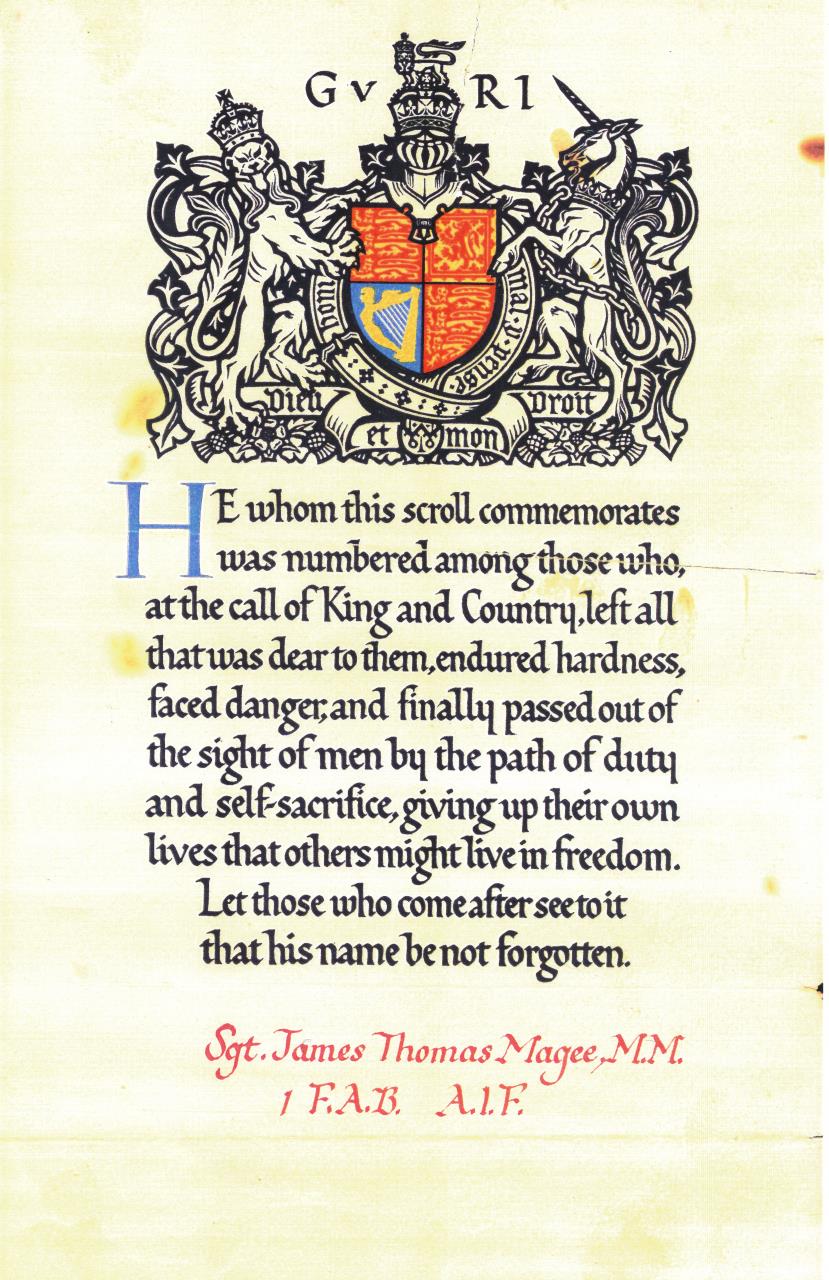 G V R I
honi
mal·y·pense
Dieu et mon Droit
HE whom this scroll commemorates
was numbered among those who,
at the call of King and Country, left all
that was dear to them, endured hardness,
faced danger, and finally passed out of
the sight of men by the path of duty
and self-sacrifice, giving up their own
lives that others might live in freedom.
Let those who come after see to it
that his name be not forgotten.
Sgt. James Thomas Magee, M.M.
1 F.A.B. A.I.F.